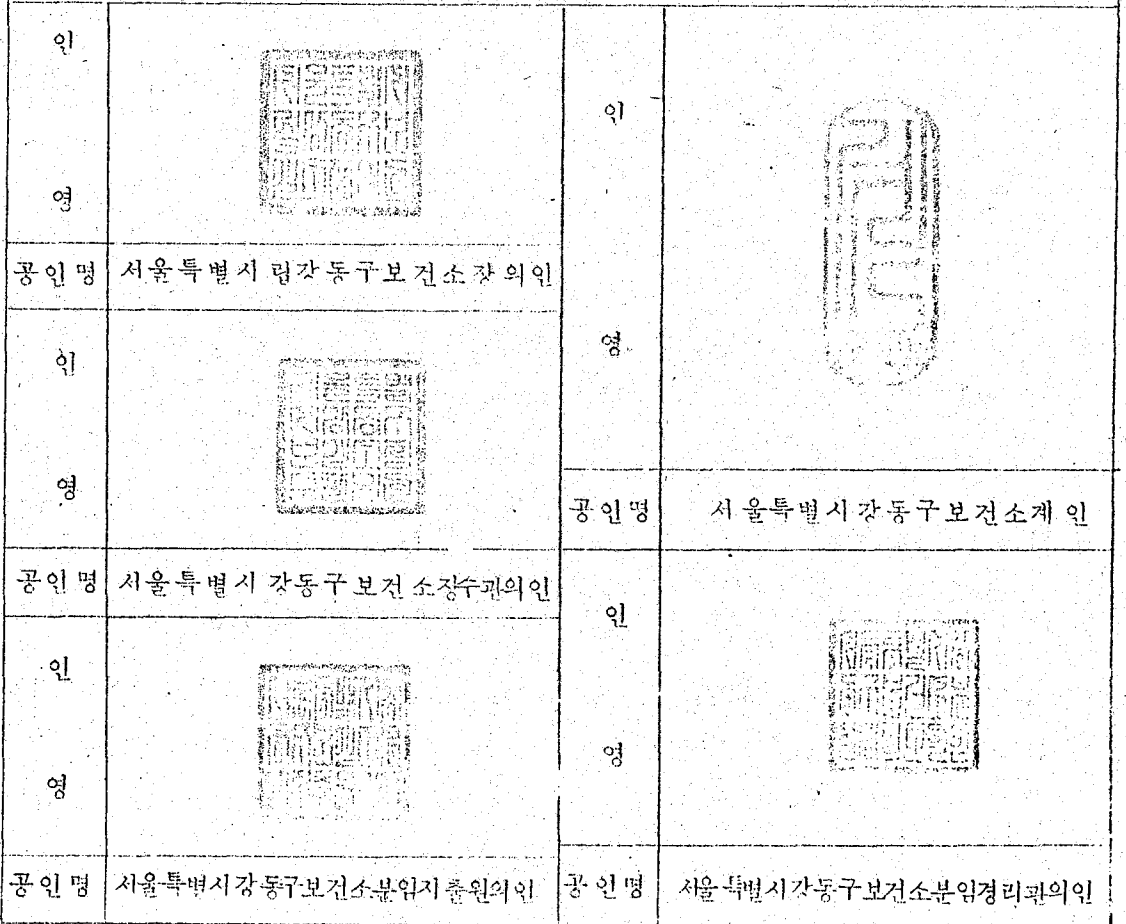 인
영
공인명 서울특별시립강동구보건소장의인
인
영
공인명 서울특별시강동구보건소징수관의인
인
영
공인명 서울특별시강동구보건소분임지출원의인
인
영
공인명 서울특별시강동구보건소계인
인
영
공인명 서울특별시강동구보건소분임경리관의인